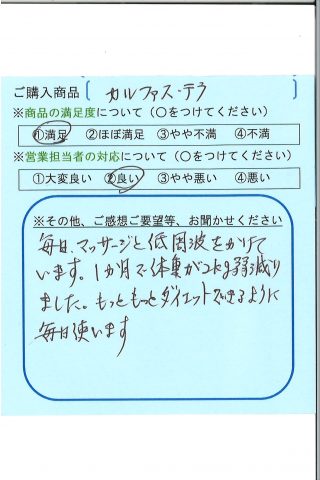 ご購入商品 〔 カルファス・テラ 〕
※商品の満足度について（○をつけてください）
①満足 ②ほぼ満足 ③やや不満 ④不満
※営業担当者の対応について（○をつけてください）
①大変良い ②良い ③やや悪い ④悪い
※その他、ご感想ご要望等、お聞かせください
毎日、マッサージと低周波をかけて
います。1か月で体重が2kg弱減り
ました。もっともっとダイエットできるように
毎日使います